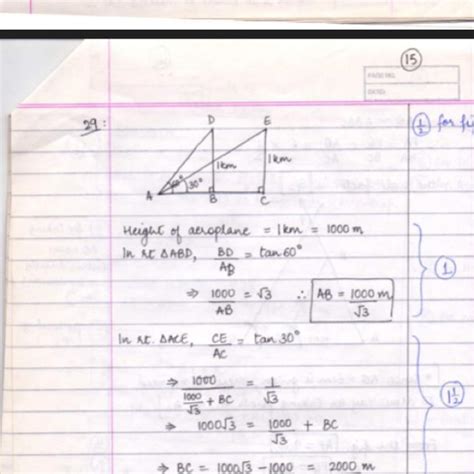 15
PAGE NO.
DATE:
29:
½ for fi
D E
1km 1km
60° 30°
A B C
Height of aeroplane = 1km = 1000 m
In rt ΔABD, BD/AB = tan 60°
⇒ 1000/AB = √3 ∴ AB = 1000/√3 m
1
In rt. ΔACE, CE/AC = tan 30°
⇒ 1000/(1000/√3 + BC) = 1/√3
1½
⇒ 1000√3 = 1000/√3 + BC
⇒ BC = 1000√3 - 1000 = 2000 m